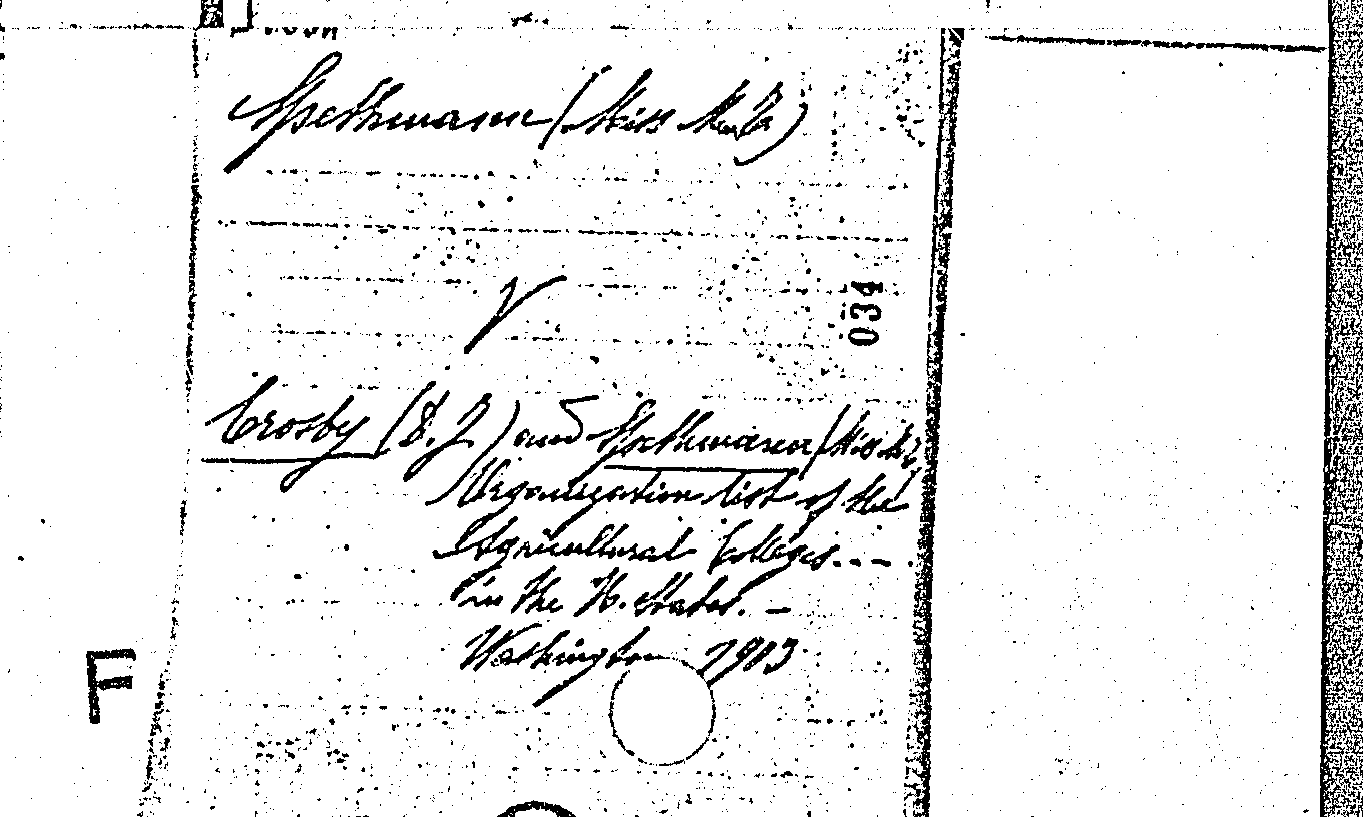 Spethmann (Miss M. T.)
V
034
Crosby (D. J.) and Spethmann (Miss M. T.
Organization list of the
Agricultural Colleges...
in the U. States. —
Washington 1903
F